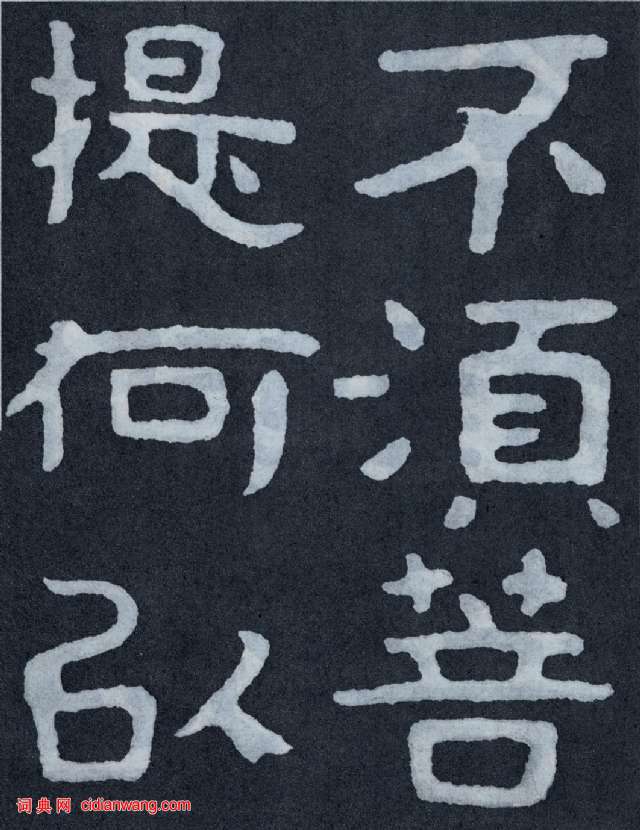 不須菩
提何以
词典网 cidianwang.com